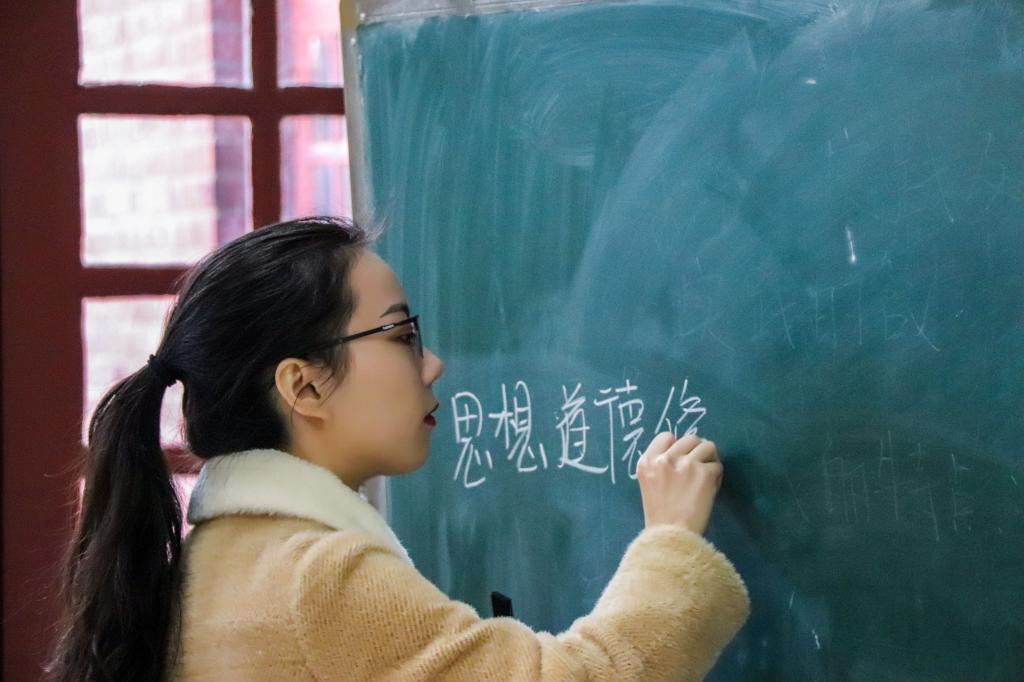 思想道德修